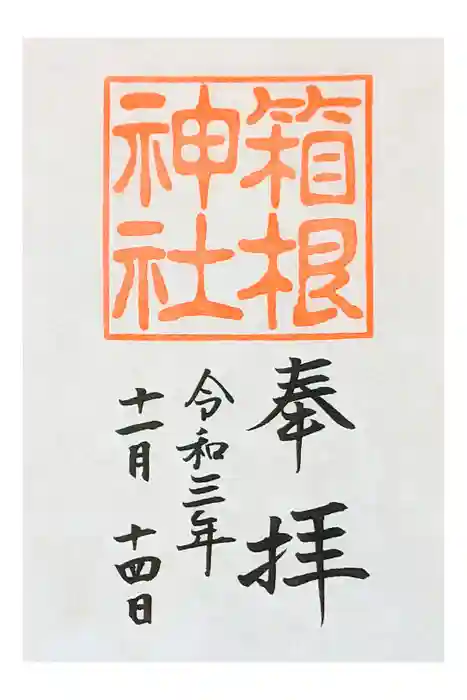 箱根
神社
奉拝
令和三年
十一月 十四日